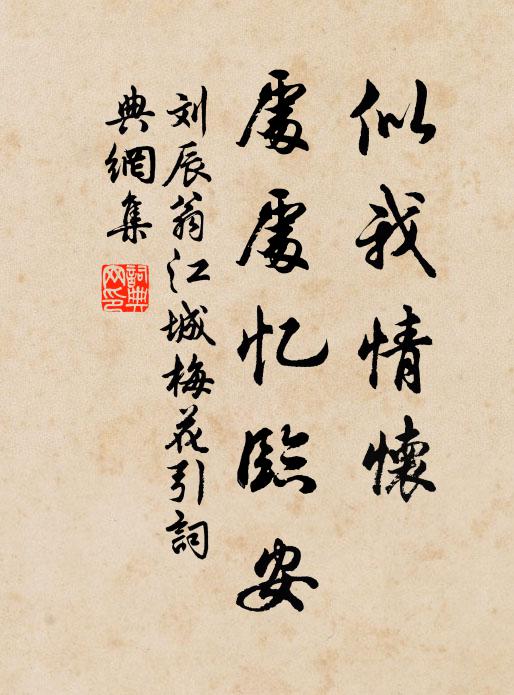 似我情懷
處處忆臨安
刘辰翁江城梅花引詞
典網集
詞典
网印